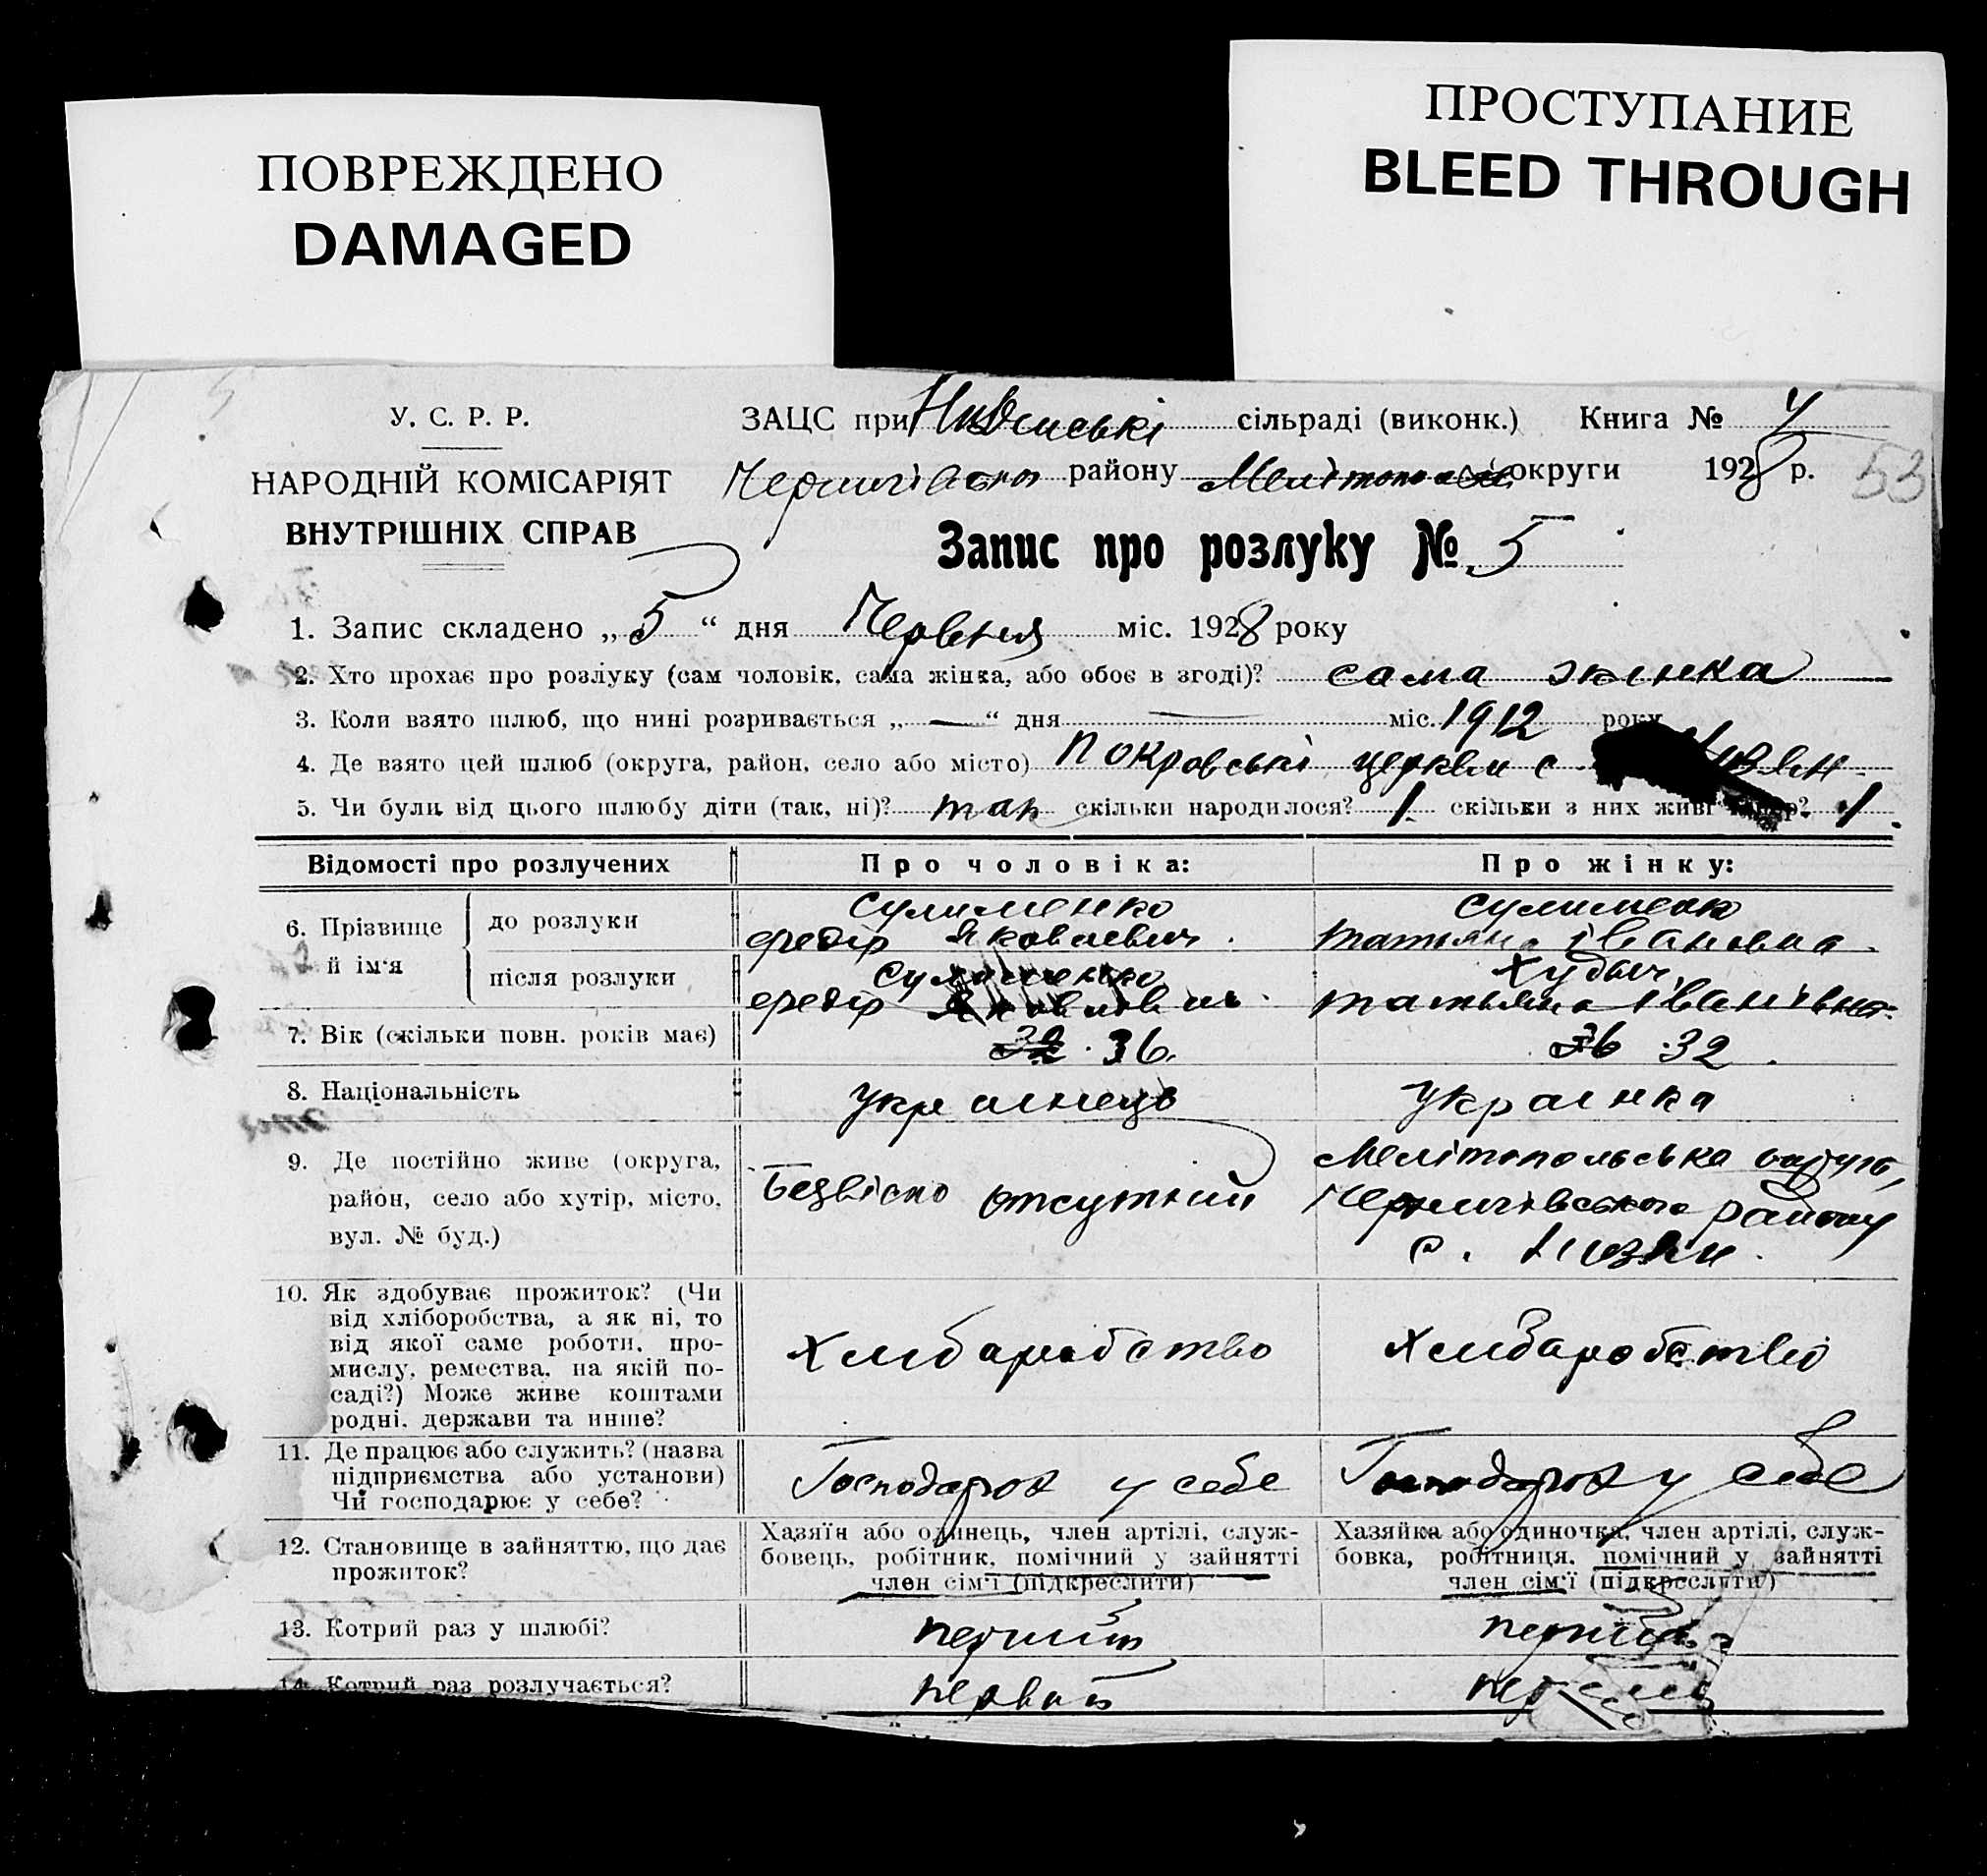 ПОВРЕЖДЕНО
DAMAGED
ПРОСТУПАНИЕ
BLEED THROUGH
У. С. Р. Р.
НАРОДНІЙ КОМІСАРІЯТ
ВНУТРІШНІХ СПРАВ
ЗАЦС при сільраді (виконк.) Книга № 4
району округи 1928 р. 53
Запис про розлуку № 5
1. Запис складено „ 5 “ дня Червня міс. 1928 року
2. Хто прохає про розлуку (сам чоловік, сама жінка, або обоє в згоді)? сама жінка
3. Коли взято шлюб, що нині розривається „ — “ дня — міс. 1912 року
4. Де взято цей шлюб (округа, район, село або місто) Покровські церкви с
5. Чи були від цього шлюбу діти (так, ні)? так скільки народилося? 1 скільки з них живі 1.
Відомості про розлучених
Про чоловіка:
Про жінку:
6. Прізвище й ім'я
до розлуки
Сулименко
Федір Яковлевич.
Сулименко
Татьяна Івановна.
після розлуки
Сулименко
Федір Яковлевич.
Татьяна Іванівна.
7. Вік (скільки повн. років має)
32. 36.
36. 32.
8. Національність
Українець
Українка
9. Де постійно живе (округа,
район, село або хутір, місто,
вул. № буд.)
Безвісно отсутний
Мелітопольська округа,
району
с.
10. Як здобуває прожиток? (Чи
від хліборобства, а як ні, то
від якої саме роботи, про-
мислу, ремества, на якій по-
саді?) Може живе коштами
родні, держави та инше?
Хлибаробство
Хлибаробство
11. Де працює або служить? (назва
підприємства або установи)
Чи господарює у себе?
у себе
у себе
12. Становище в зайняттю, що дає
прожиток?
Хазяїн або одинець, член артілі, служ-
бовець, робітник, помічний у зайнятті
член сім'ї (підкреслити)
Хазяйка або одиночка, член артілі, служ-
бовка, робітниця, помічний у зайнятті
член сім'ї (підкреслити)
13. Котрий раз у шлюбі?
перший
14. Котрий раз розлучається?
первий